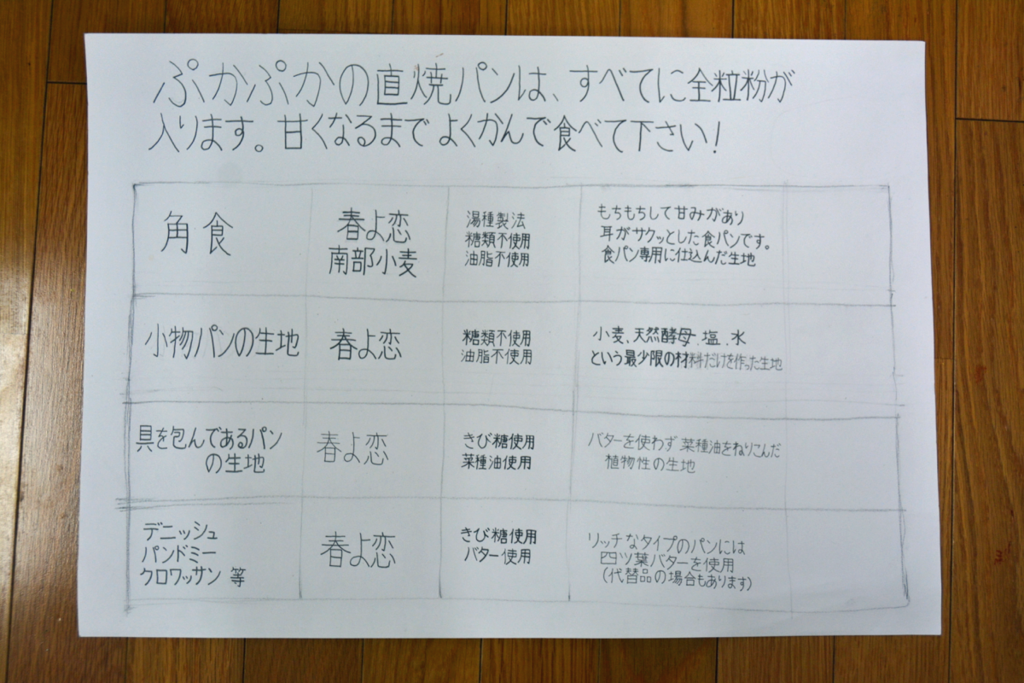 ぷかぷかの直焼パンは、すべてに全粒粉が
入ります。甘くなるまでよくかんで食べて下さい！
角食
春よ恋
南部小麦
湯種製法
糖類不使用
油脂不使用
もちもちして甘みがあり
耳がサクッとした食パンです。
食パン専用に仕込んだ生地
小物パンの生地
春よ恋
糖類不使用
油脂不使用
小麦、天然酵母、塩、水
という最少限の材料だけを作った生地
具を包んであるパン
の生地
春よ恋
きび糖使用
菜種油使用
バターを使わず菜種油をねりこんだ
植物性の生地
デニッシュ
パンドミー
クロワッサン 等
春よ恋
きび糖使用
バター使用
リッチなタイプのパンには
四ツ葉バターを使用
(代替品の場合もあります)